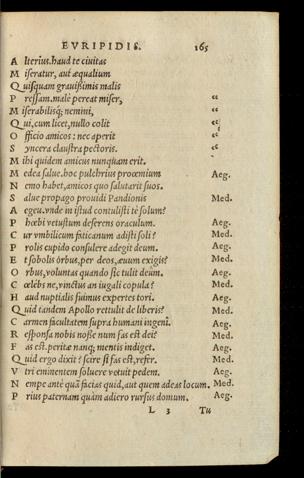 EVRIPIDIS. 165
A lterius.haud te ciuitas
M iseratur, aut æqualium
Q uisquam grauißimis malis
P ressam.male pereat miser, “
M iserabilisq; nemini, “
Q ui, cum licet, nullo colit “
O fficio amicos: nec aperit “
S yncera claustra pectoris. “
M ihi quidem amicus nunquam erit.
M edea salue.hoc pulchrius proœmium Aeg.
N emo habet, amicos quo salutarit suos.
S alue propago prouidi Pandionis Med.
A egeu.vnde in istud contulisti te solum?
P hœbi vetustum deserens oraculum. Aeg.
C ur vmbilicum fatidicum adisti soli? Med.
P rolis cupido consulere adegit deum. Aeg.
E t sobolis orbus, per deos, æuum exigis? Med.
O rbus, voluntas quando sic tulit deûm. Aeg.
C œlebs ne, vinctus an iugali copula? Med.
H aud nuptialis suimus expertes tori. Aeg.
Q uid tandem Apollo rettulit de liberis? Med.
C armen facultatem supra humani ingenî. Aeg.
R esponsa nobis nosse num fas est dei? Med.
F as est.peritæ nanq; mentis indiget. Aeg.
Q uid ergo dixit? scire si fas est, refer. Med.
V tri eminentem soluere vetuit pedem. Aeg.
N empe antè quã facias quid, aut quem adeas locum. Med.
P rius paternam quàm adiero rursus domum. Aeg.
L 3 Tu